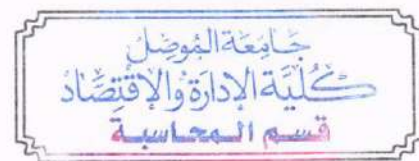 جَامِعَة المُوصِل
كُليَّة الإدَارَة وَالإقْتِصَادْ
قسم المحاسبة